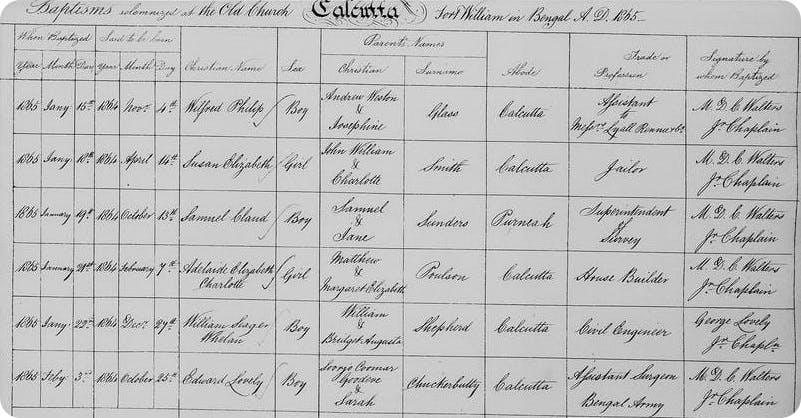 Baptisms solemnized at the Old Church Calcutta Fort William in Bengal A.D. 1865
When Baptized Said to be born Parents Names Trade or Signature by
Year Month Day Year Month Day Christian Name Sex Christian Surname Abode Profession whom Baptized
1865 Jany 15th 1864 Novr 4th Wilfred Philip Boy Andrew Weston & Josephine Glass Calcutta Assistant to Messrs Lyall Rennie & Co. M. D. C. Walters Jr Chaplain
1865 Jany 18th 1864 April 14th Susan Elizabeth Girl John William & Charlotte Smith Calcutta Jailor M. D. C. Walters Jr Chaplain
1865 January 19th 1864 October 15th Samuel Claud Boy Samuel & Jane Sunders Purneah Superintendent of Survey M. D. C. Walters Jr Chaplain
1865 January 21st 1864 February 7th Adelaide Elizabeth Charlotte Girl Matthew & Margaret Elizabeth Poulson Calcutta House Builder M. D. C. Walters Jr Chaplain
1865 Jany 22nd 1864 Decr 27th William Seager Whelan Boy William & Bridget Augusta Shepherd Calcutta Civil Engeneer George Lovely Jr Chapln
1865 Feby 3rd 1864 October 25th Edward Lovely Boy Soorjo Coomar Goodeve & Sarah Chuckerbutty Calcutta Assistant Surgeon Bengal Army M. D. C. Walters Jr Chaplain